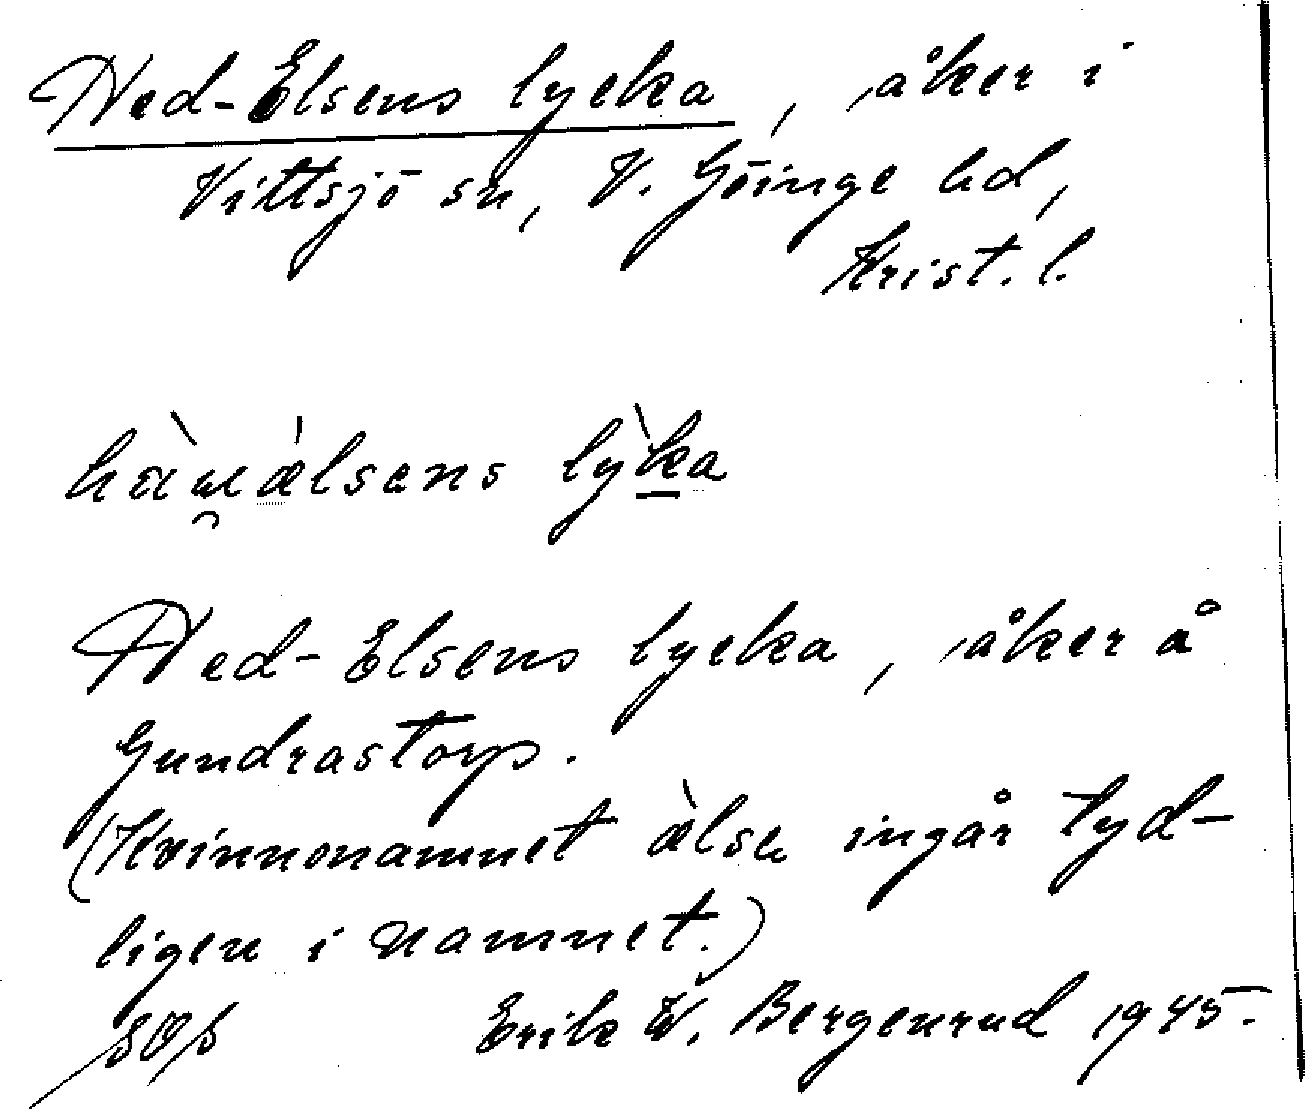 Hed-Elsens lycka, åker i
Vittsjö sn, V. Göinge hd,
Krist. l.
lỳka
Hed-Elsens lycka, åker å
Gundrastorp.
(Kvinnonamnet æ̀lse ingår tyd-
ligen i namnet.)
Erik W. Bergenrud 1945.